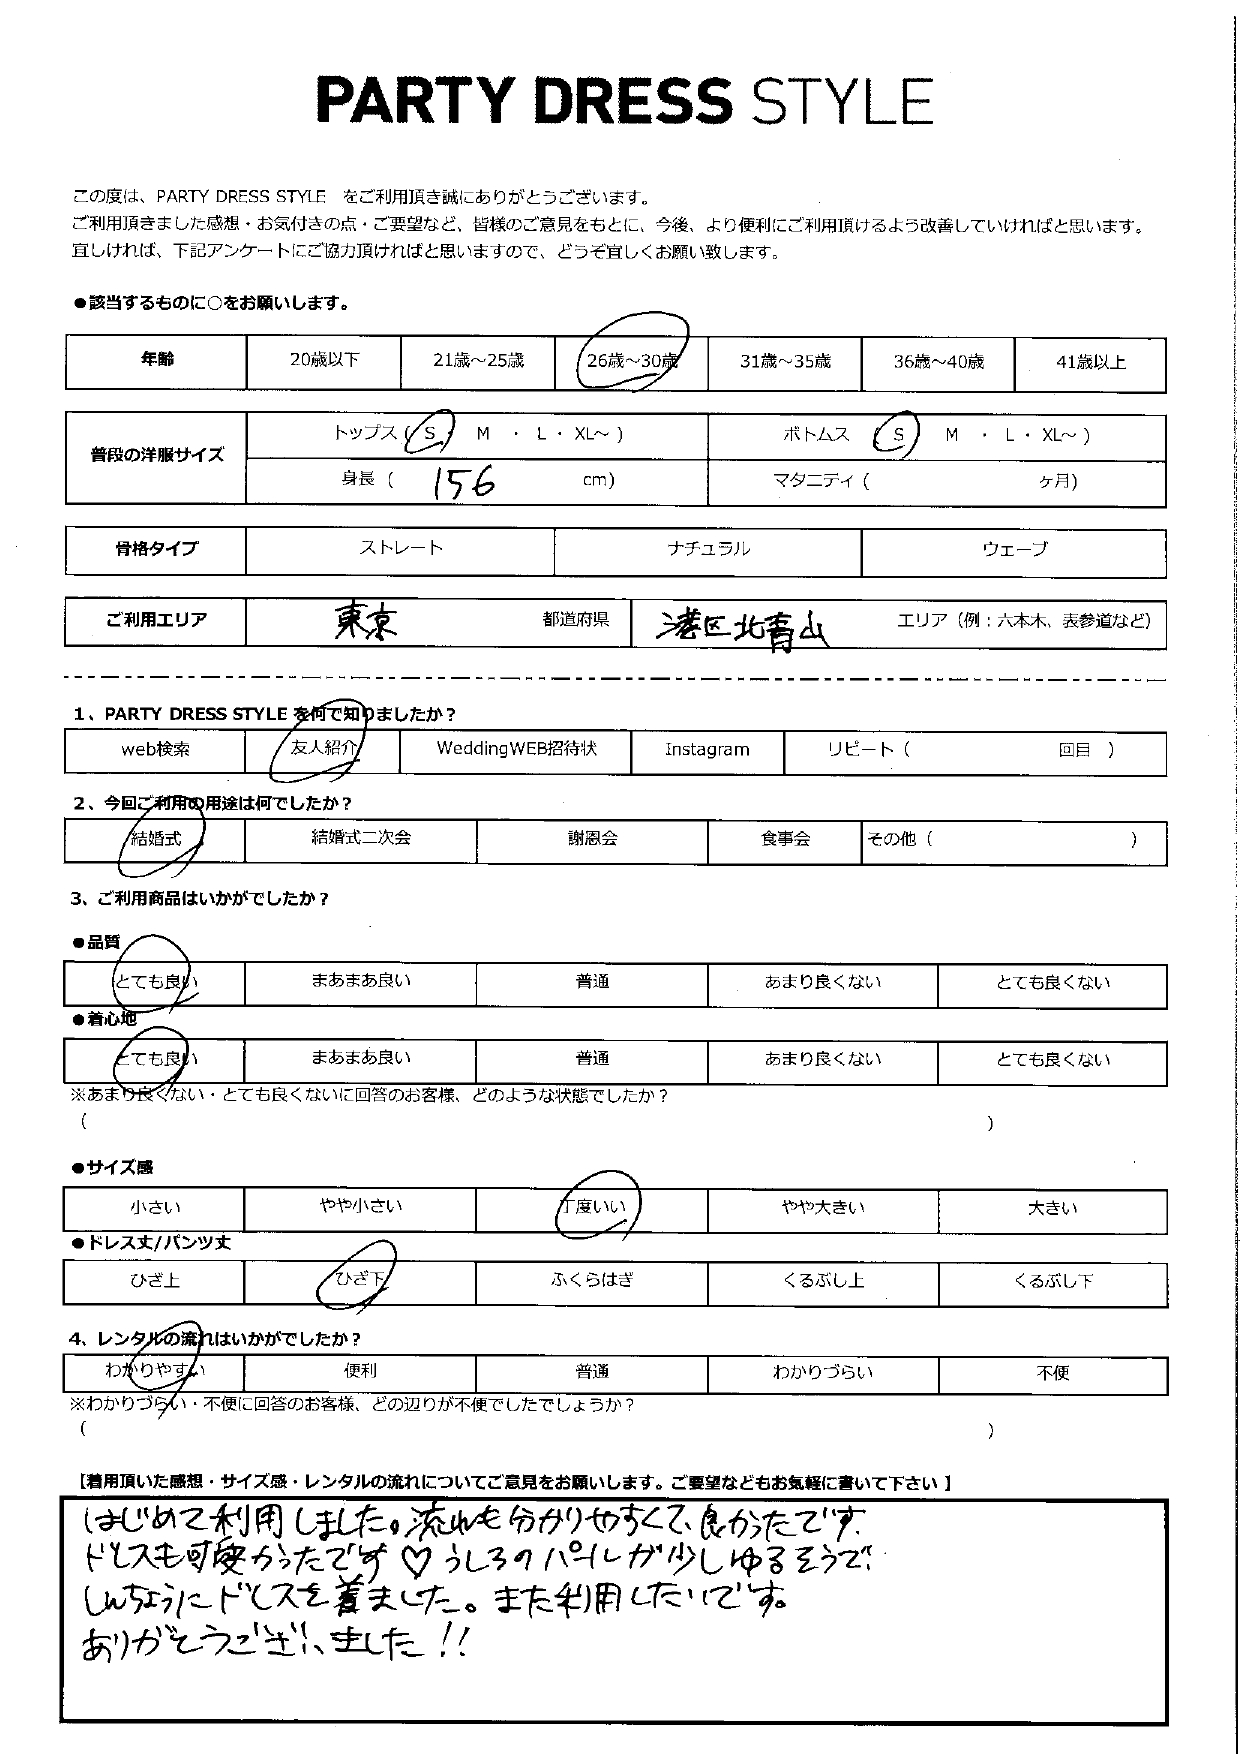 PARTY DRESS STYLE
この度は、PARTY DRESS STYLE をご利用頂き誠にありがとうございます。
ご利用頂きました感想・お気付きの点・ご要望など、皆様のご意見をもとに、今後、より便利にご利用頂けるよう改善していければと思います。
宜しければ、下記アンケートにご協力頂ければと思いますので、どうぞ宜しくお願い致します。
●該当するものに○をお願いします。
年齢 20歳以下 21歳～25歳 26歳～30歳 31歳～35歳 36歳～40歳 41歳以上
普段の洋服サイズ トップス ( S ・ M ・ L ・ XL～ ) ボトムス ( S ・ M ・ L ・ XL～ )
身長 ( 156 cm) マタニティ ( ヶ月)
骨格タイプ ストレート ナチュラル ウェーブ
ご利用エリア 東京 都道府県 港区北青山 エリア（例：六本木、表参道など）
1、PARTY DRESS STYLE を何で知りましたか？
web検索 友人紹介 WeddingWEB招待状 Instagram リピート ( 回目 )
2、今回ご利用の用途は何でしたか？
結婚式 結婚式二次会 謝恩会 食事会 その他 ( )
3、ご利用商品はいかがでしたか？
●品質
とても良い まあまあ良い 普通 あまり良くない とても良くない
●着心地
とても良い まあまあ良い 普通 あまり良くない とても良くない
※あまり良くない・とても良くないに回答のお客様、どのような状態でしたか？
( )
●サイズ感
小さい やや小さい 丁度いい やや大きい 大きい
●ドレス丈/パンツ丈
ひざ上 ひざ下 ふくらはぎ くるぶし上 くるぶし下
4、レンタルの流れはいかがでしたか？
わかりやすい 便利 普通 わかりづらい 不便
※わかりづらい・不便に回答のお客様、どの辺りが不便でしたでしょうか？
( )
【着用頂いた感想・サイズ感・レンタルの流れについてご意見をお願いします。ご要望などもお気軽に書いて下さい】
はじめて利用しました。流れも分かりやすくて、良かったです.
ドレスも可愛かったです♡うしろのパールが少しゆるそうで、
しんちょうにドレスを着ました。また利用したいです。
ありがとうございました!!